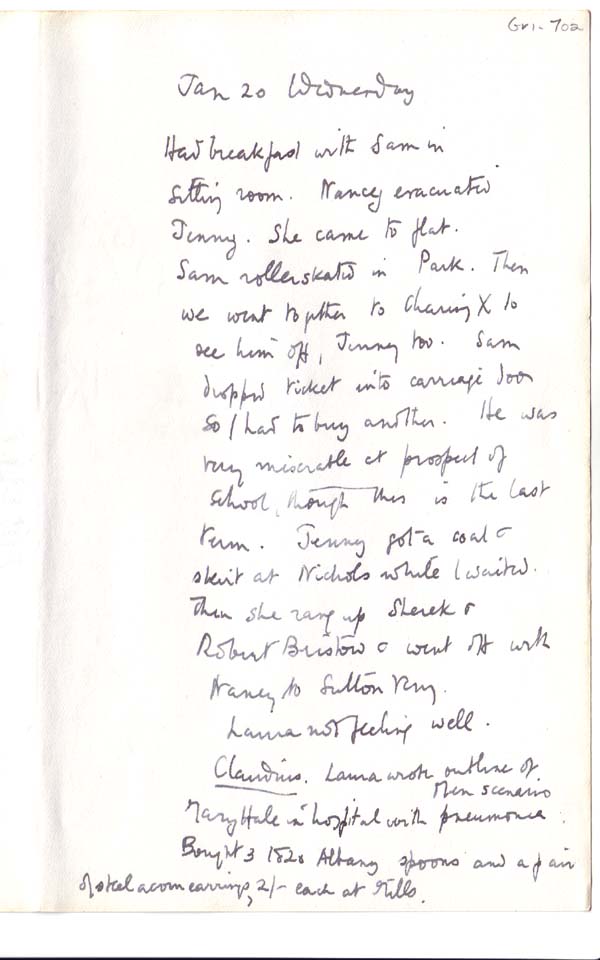 Gr1-702
Jan 20 Wednesday
Had breakfast with Sam in
sitting room. Nancy evacuated
Jenny. She came to flat.
Sam rollerskated in Park. Then
we went together to Charing X to
see him off, Jenny too. Sam
dropped ticket into carriage door
so I had to buy another. He was
very miserable at prospect of
school, though this is the last
term. Jenny got a coat &
skirt at Nichols while I waited.
Then she rang up Sherek &
Robert Bristow & went off with
Nancy to Sutton Veny.
Laura not feeling well.
Claudius. Laura wrote outline of
then scenario
Mary Hale in hospital with pneumonia.
Bought 3 1820 Albany spoons and a pair
of steel acorn earrings, 2/- each at Mills.